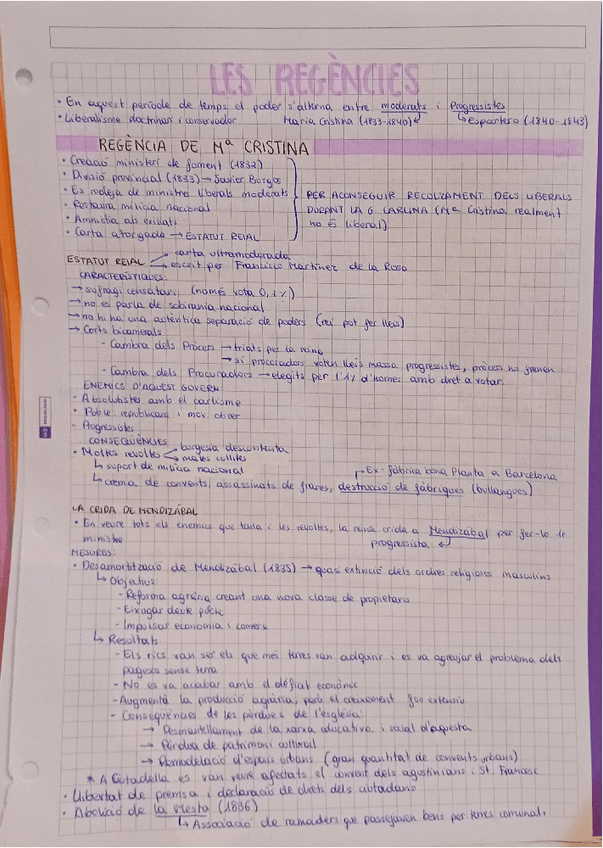 LES REGÈNCIES
· En aquest període de temps el poder s'alterna entre moderats i Progressistes
· Liberalisme doctrinari i conservador Maria Cristina (1833-1840) ↳ Espartero (1840-1843)
REGÈNCIA DE Mª CRISTINA
· Creació ministeri de foment (1832)
· Divisió provincial (1833) → Javier Burgos
· Es rodeja de ministres liberals moderats
· Restaura milícia nacional
· Amnistia als exiliats
· Carta atorgada → ESTATUT REIAL
PER ACONSEGUIR RECOLZAMENT DELS LIBERALS
DURANT LA G. CARLINA (Mª Cristina realment
no és liberal)
ESTATUT REIAL → carta ultramoderada
→ escrit per Francisco Martínez de la Rosa
CARACTERÍSTIQUES:
→ sufragi censatari (només vota 0,1%)
→ no es parla de sobirania nacional
→ no hi ha una autèntica separació de poders (rei pot fer lleis)
→ Corts bicamerals
- Cambra dels Pròcers → triats per la reina
→ si procuradors voten lleis massa progressistes, pròcers ho frenen
- Cambra dels Procuradors → elegits per l'1% d'homes amb dret a votar
ENEMICS D'AQUEST GOVERN:
· Absolutistes amb el carlisme
· Poble: republicans i mov. obrer
- Progressistes
CONSEQÜÈNCIES
· Moltes revoltes → burgesia descontenta
→ males collites
↳ suport de milícia nacional
Ex. fàbrica bona Planta a Barcelona
↳ crema de convents, assassinats de frares, destrucció de fàbriques (bullangues)
LA CRIDA DE MENDIZÁBAL
· En veure tots els enemics que tenia i les revoltes, la reina crida a Mendizábal per fer-lo 1r
ministre progressista
MESURES:
· Desamortització de Mendizábal (1835) → quasi extinció dels ordres religiosos masculins
↳ Objectius:
- Reforma agrària creant una nova classe de propietaris
- Eixugar deute públic
- Impulsar economia i comerç
↳ Resultats
- Els rics van ser els que més terres van adquirir i es va agreujar el problema dels
pagesos sense terra
- No es va acabar amb el dèficit econòmic
- Augmentà la producció agrària, però el creixement fou extensiu
- Conseqüències de les pèrdues de l'església:
→ Desmantellament de la xarxa educativa i social d'aquesta
→ Pèrdua de patrimoni cultural
→ Remodelació d'espais urbans (gran quantitat de convents urbans)
* A Ciutadella es van veure afectats el convent dels agustinians i St. Francesc
· Llibertat de premsa i declaració de drets dels ciutadans
· Abolició de la Mesta (1836)
↳ Associació de ramaders que passejaven bens per terres comunals